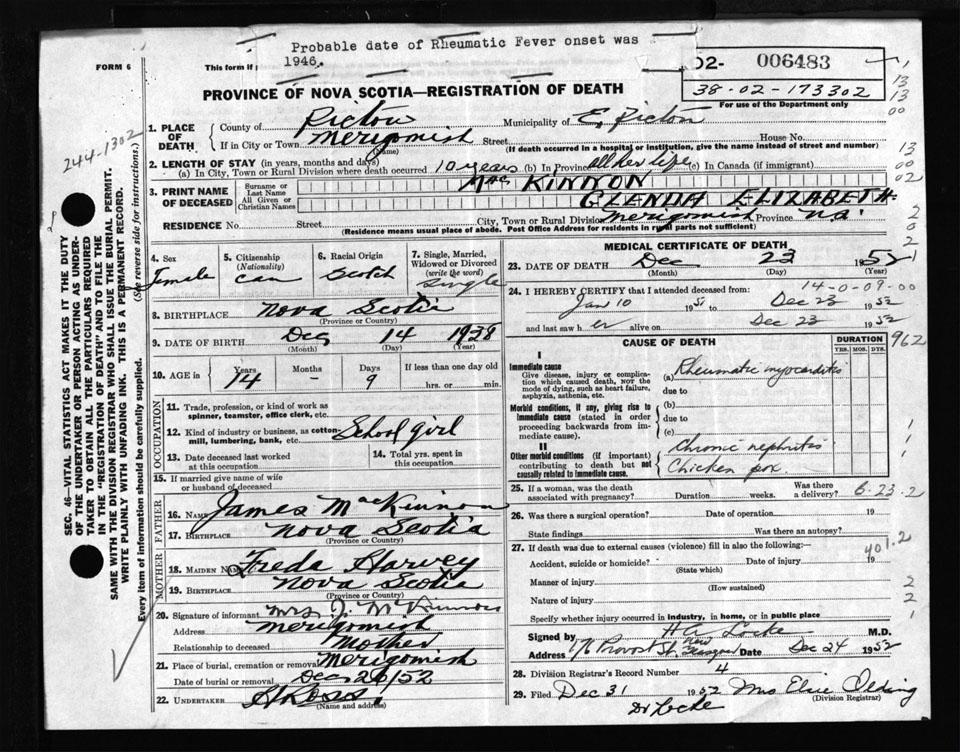 Probable date of Rheumatic Fever onset was
1946.
FORM 6
This form if
02- 006483
38-02-173302
For use of the Department only
PROVINCE OF NOVA SCOTIA—REGISTRATION OF DEATH
244-1302
SEC. 46—VITAL STATISTICS ACT MAKES IT THE DUTY
OF THE UNDERTAKER OR PERSON ACTING AS UNDER-
TAKER TO OBTAIN ALL THE PARTICULARS REQUIRED
IN THE "REGISTRATION OF DEATH" AND TO FILE THE
SAME WITH THE DIVISION REGISTRAR WHO SHALL ISSUE THE BURIAL PERMIT.
WRITE PLAINLY WITH UNFADING INK. THIS IS A PERMANENT RECORD.
Every item of information should be carefully supplied. (See reverse side for instructions.)
1. PLACE OF DEATH
County of Pictou Municipality of E. Pictou
If in City or Town Merigomish Street House No.
(Name) (If death occurred in a hospital or institution, give the name instead of street and number)
2. LENGTH OF STAY (in years, months and days)
(a) In City, Town or Rural Division where death occurred 10 years (b) In Province all her life (c) In Canada (if immigrant)
3. PRINT NAME OF DECEASED
Surname or Last Name Mac KINNON
All Given or Christian Names GLENDA ELIZABETH
RESIDENCE No. Street City, Town or Rural Division Merigomish Province N.S.
(Residence means usual place of abode. Post Office Address for residents in rural parts not sufficient)
4. Sex
Female
5. Citizenship
(Nationality)
Can
6. Racial Origin
Scotch
7. Single, Married,
Widowed or Divorced
(write the word)
Single
8. BIRTHPLACE Nova Scotia
(Province or Country)
9. DATE OF BIRTH Dec 14 1938
(Month) (Day) (Year)
10. AGE in Years Months Days If less than one day old
14 - 9 hrs. or min.
OCCUPATION
11. Trade, profession, or kind of work as
spinner, teamster, office clerk, etc.
12. Kind of industry or business, as cotton-
mill, lumbering, bank, etc. School girl
13. Date deceased last worked
at this occupation
14. Total yrs. spent in
this occupation
15. If married give name of wife
or husband of deceased
FATHER
16. Name James MacKinnon
17. Birthplace Nova Scotia
(Province or Country)
MOTHER
18. MAIDEN NAME Freda Harvey
19. BIRTHPLACE Nova Scotia
(Province or Country)
20. Signature of informant Mrs J. McKinnon
Address Merigomish
Relationship to deceased Mother
21. Place of burial, cremation or removal Merigomish
Date of burial or removal Dec 26/52
22. UNDERTAKER
(Name and address)
MEDICAL CERTIFICATE OF DEATH
23. DATE OF DEATH Dec 23 1952
(Month) (Day) (Year)
14-0-09-00
24. I HEREBY CERTIFY that I attended deceased from:
Jan 10 1951 to Dec 23 1952
and last saw her alive on Dec 23 1952
CAUSE OF DEATH
DURATION
YRS. MOS. DYS.
962
I
Immediate cause
Give disease, injury or complica-
tion which caused death, NOT the
mode of dying, such as heart failure,
asphyxia, asthenia, etc.
(a) Rheumatic myocarditis
due to
Morbid conditions, if any, giving rise to
immediate cause (stated in order
proceeding backwards from im-
mediate cause).
(b)
due to
(c)
II
Other morbid conditions (if important)
contributing to death but not
causally related to immediate cause.
Chronic nephritis
Chicken pox
25. If a woman, was the death
associated with pregnancy? Duration weeks. Was there
a delivery?
6-23-2
26. Was there a surgical operation? Date of operation 19
State findings Was there an autopsy?
27. If death was due to external causes (violence) fill in also the following:—
401.2
Accident, suicide or homicide? Date of injury 19
(State which)
Manner of injury
(How sustained)
Nature of injury
Specify whether injury occurred in industry, in home, or in public place
Signed by H A Locke M.D.
Address 176 Provost St., New Glasgow Date Dec 24 1952
28. Division Registrar's Record Number 4
29. Filed Dec 31 1952 Mrs Elsie Olding
(Division Registrar)
Dr Locke